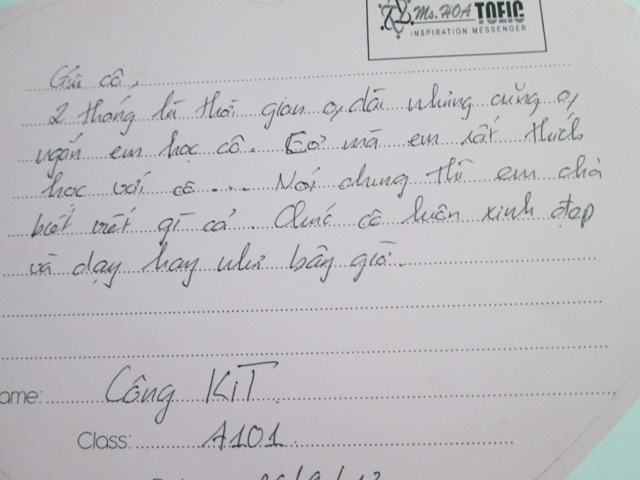 Ms. HOA TOEIC
INSPIRATION MESSENGER
Gửi cô,
2 tháng là thời gian o, dài nhưng cũng o,
ngắn em học cô. Cơ mà em rất thích
học với cô... Nói chung thì em chả
biết viết gì cả. Chúc cô luôn xinh đẹp
và dạy hay như bây giờ.
ame: Công KiT
Class: A101